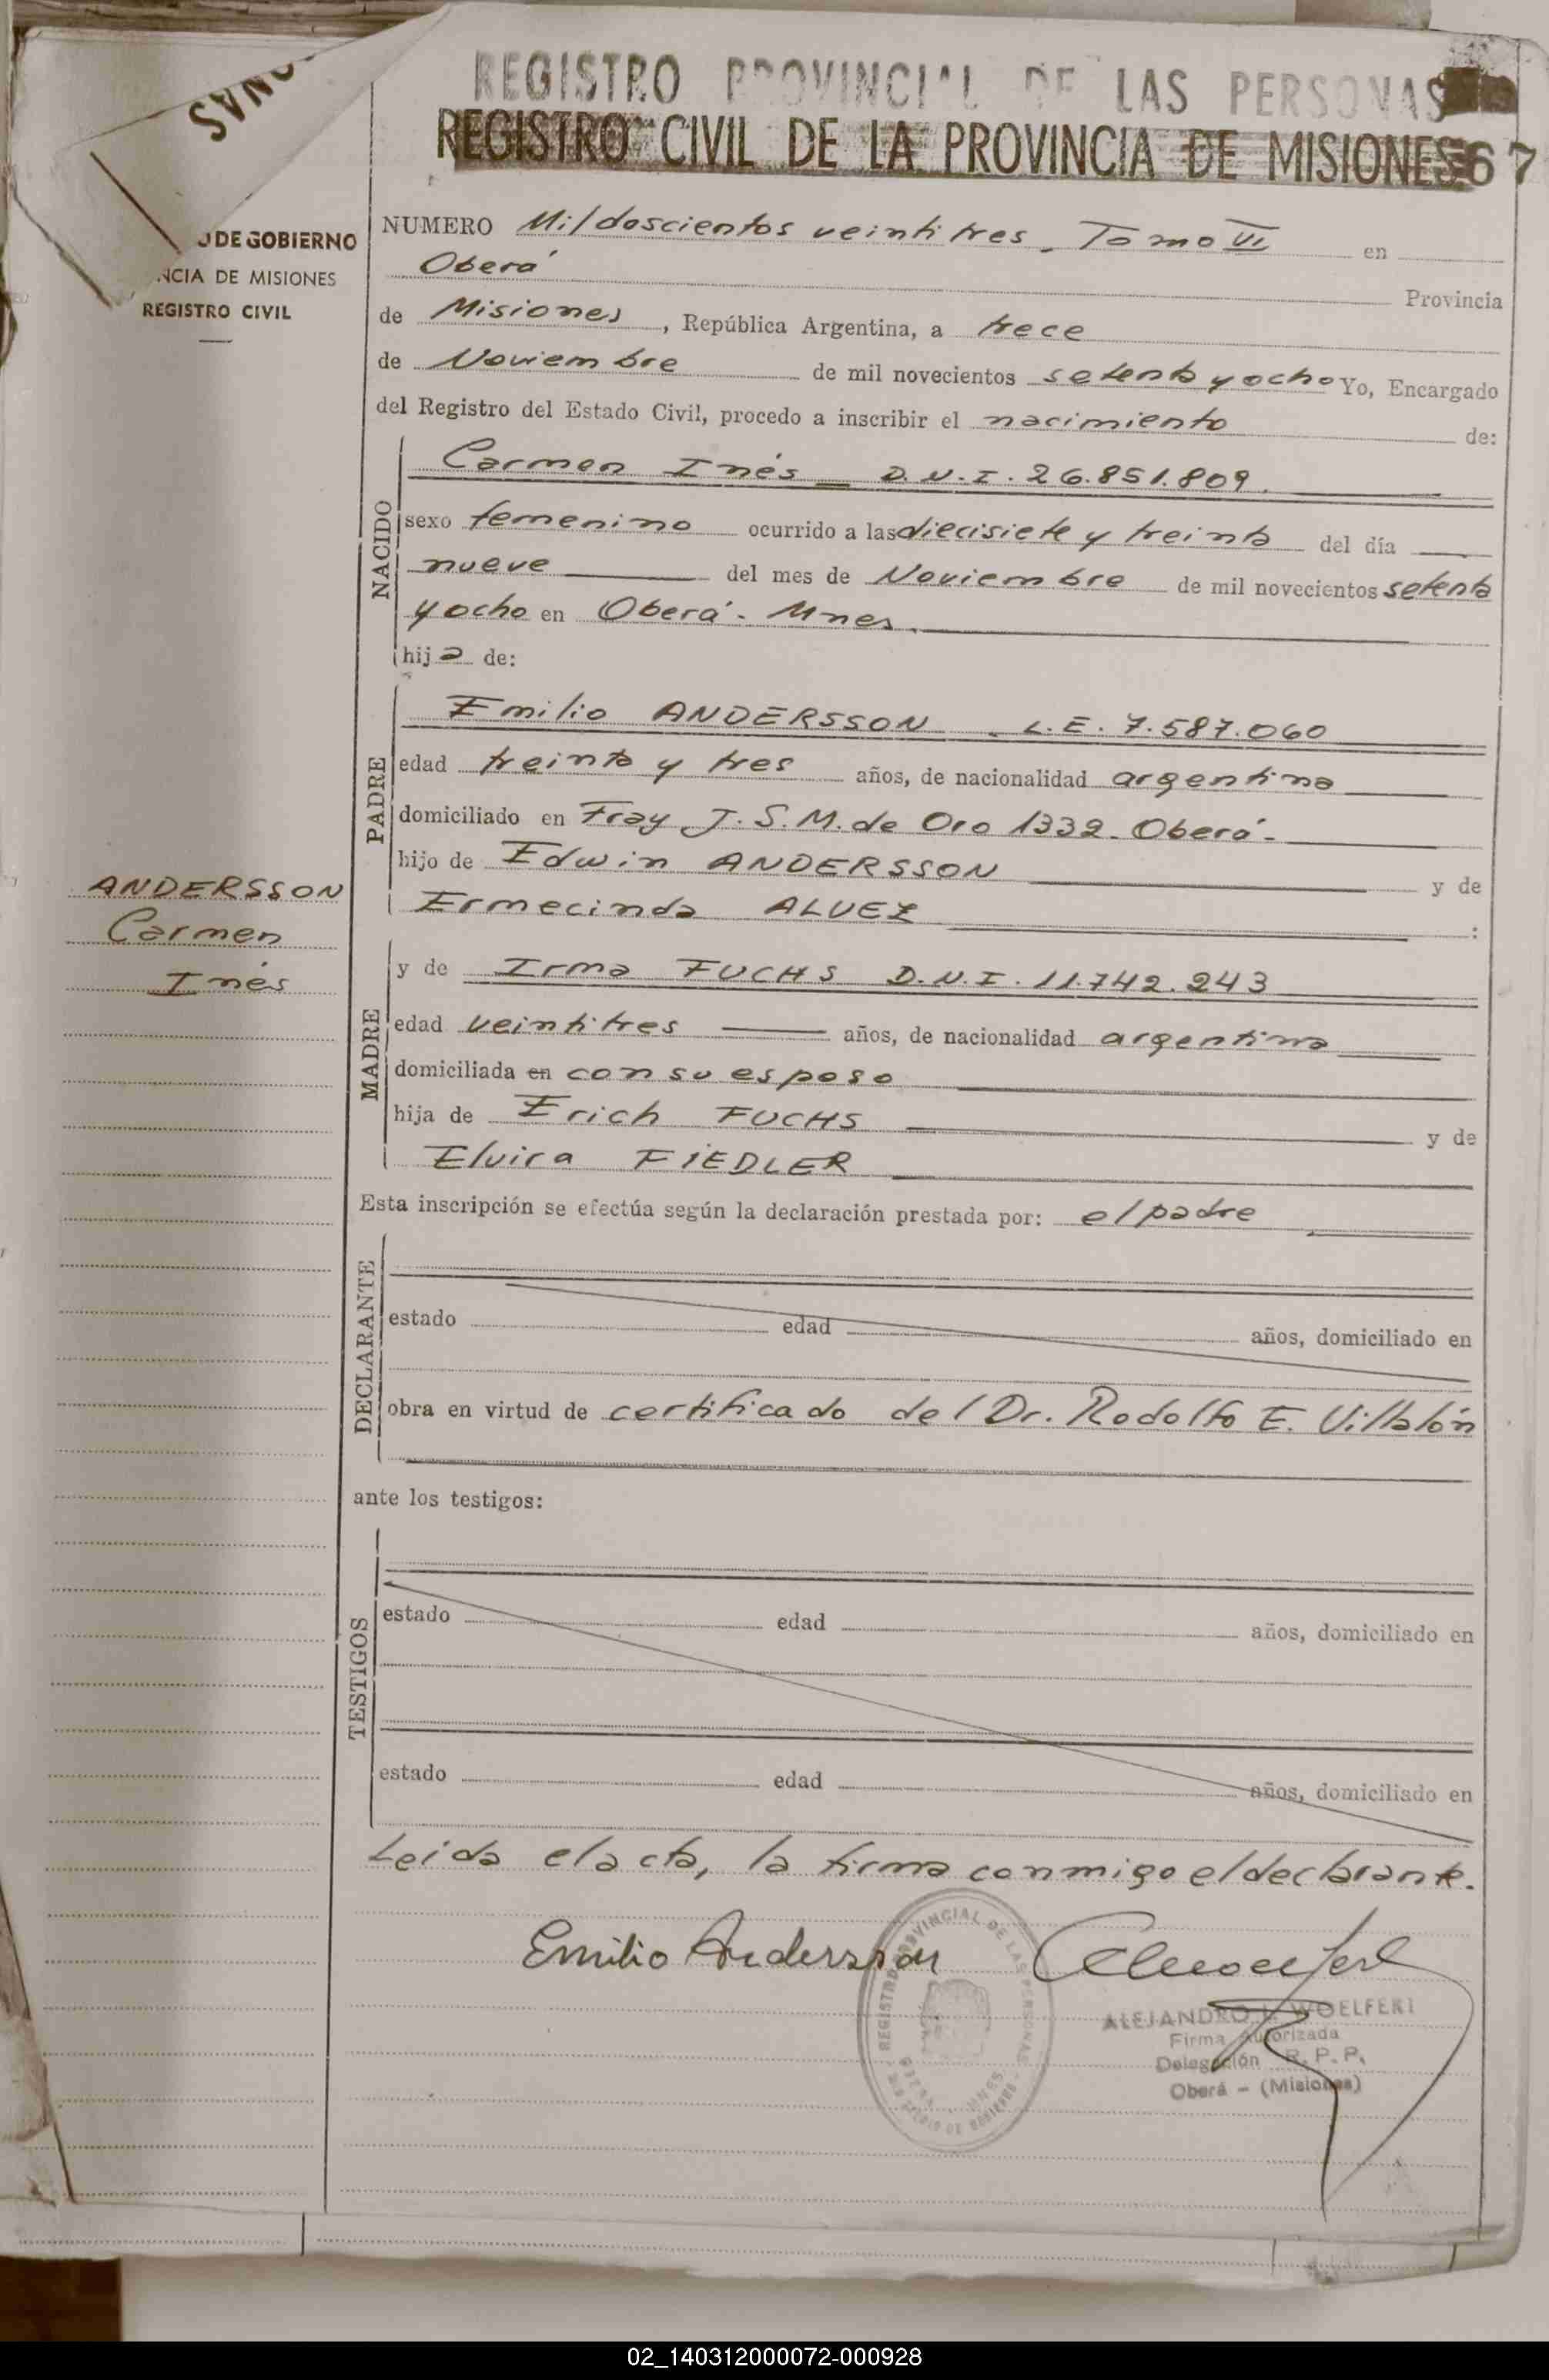 REGISTRO PROVINCIAL DE LAS PERSONAS
REGISTRO CIVIL DE LA PROVINCIA DE MISIONES 67
ONAS
O DE GOBIERNO
NCIA DE MISIONES
REGISTRO CIVIL
NUMERO Mil doscientos veintitres. Tomo VI en
Oberá Provincia
de Misiones, República Argentina, a trece
de Noviembre de mil novecientos setenta y ocho Yo, Encargado
del Registro del Estado Civil, procedo a inscribir el nacimiento de:
NACIDO
Carmen Inés D.N.I. 26.851.809.
sexo femenino ocurrido a las diecisiete y treinta del día
nueve del mes de Noviembre de mil novecientos setenta
y ocho en Oberá - Mnes.
hija de:
PADRE
Emilio ANDERSSON. L.E. 7.587.060
edad treinta y tres años, de nacionalidad argentina
domiciliado en Fray J.S.M. de Oro 1332 - Oberá -
hijo de Edwin ANDERSSON y de
Ermecinda ALVEZ :
ANDERSSON
Carmen
Inés
MADRE
y de Irma FUCHS D.N.I. 11.742.243
edad veintitres años, de nacionalidad argentina
domiciliada en con su esposo
hija de Erich FUCHS y de
Elvira FIEDLER
Esta inscripción se efectúa según la declaración prestada por: el padre
DECLARANTE
estado edad años, domiciliado en
obra en virtud de certificado del Dr. Rodolfo E. Villalón
ante los testigos:
TESTIGOS
estado edad años, domiciliado en
estado edad años, domiciliado en
Leida el acta, la firma conmigo el declarante.
Emilio Andersson
REGISTRO PROVINCIAL DE LAS PERSONAS
ALEJANDRO WOELFERT
Firma Autorizada
Delegación R.P.P.
Oberá - (Misiones)
02_140312000072-000928